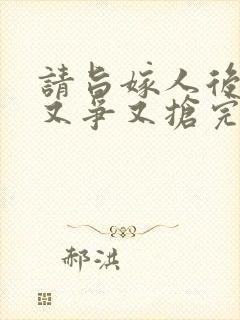 請旨嫁人後
又爭又搶完
郝洪